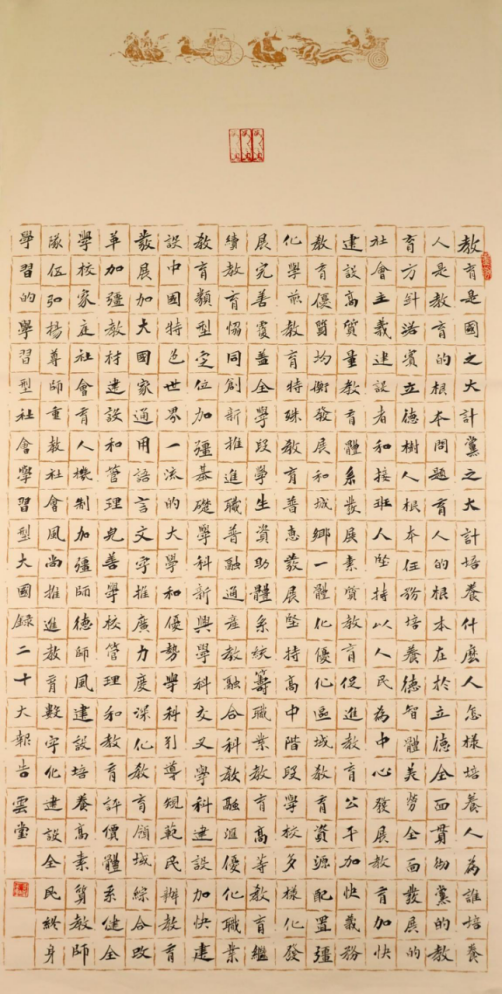 教育是國之大計黨之大計培養什麼人怎樣培養人為誰培養
人是教育的根本問題育人的根本在於立德全面貫彻黨的教
育方針落實立德樹人根本任務培養德智體美勞全面發展的
社會主義建設者和接班人堅持以人民為中心發展教育加快
建設高質量教育體系發展素質教育促進教育公平加快義務
教育優質均衡發展和城鄉一體化優化區域教育資源配置疆
化學前教育特殊教育普惠發展堅持高中階段學校多樣化發
展完善覆蓋全學段學生資助體系統籌職業教育高等教育繼
續教育協同創新推進職普融通產教融合科教融滙優化職業
教育類型定位加疆基礎學科新興學科交叉學科建設加快建
設中國特色世界一流的大學和優勢學科引導規範民辦教育
發展加大國家通用語言文字推廣力度深化教育領域綜合改
革加疆教材建設和管理完善學校管理和教育評價體系健全
學校家庭社會育人機制加疆師德師風建設培養高素質教師
隊伍弘揚尊師重教社會風尚推進教育數字化建設全民終身
學習的學習型社會學習型大國錄二十大報告雲堂